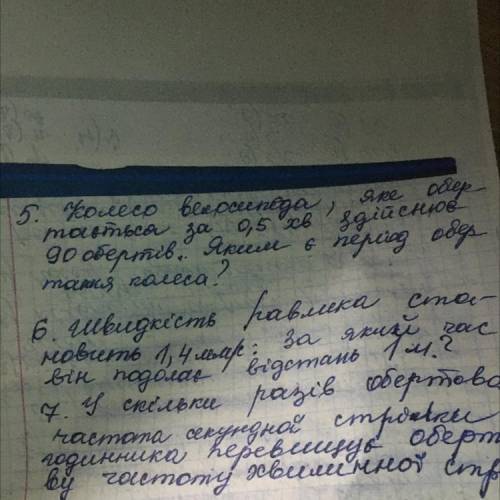 5. Колесо велосипеда, яке обер
тається за 0,5 хв здійснює
90 обертів. Яким є період обер
тання колеса?
6. Швидкість равлика ста-
новить 1,4 мм/с. За який час
він подолає відстань 1 м?
7. У скільки разів обертова
частота секундної стрілки
годинника перевищує оберто
ву частоту хвилинної стр